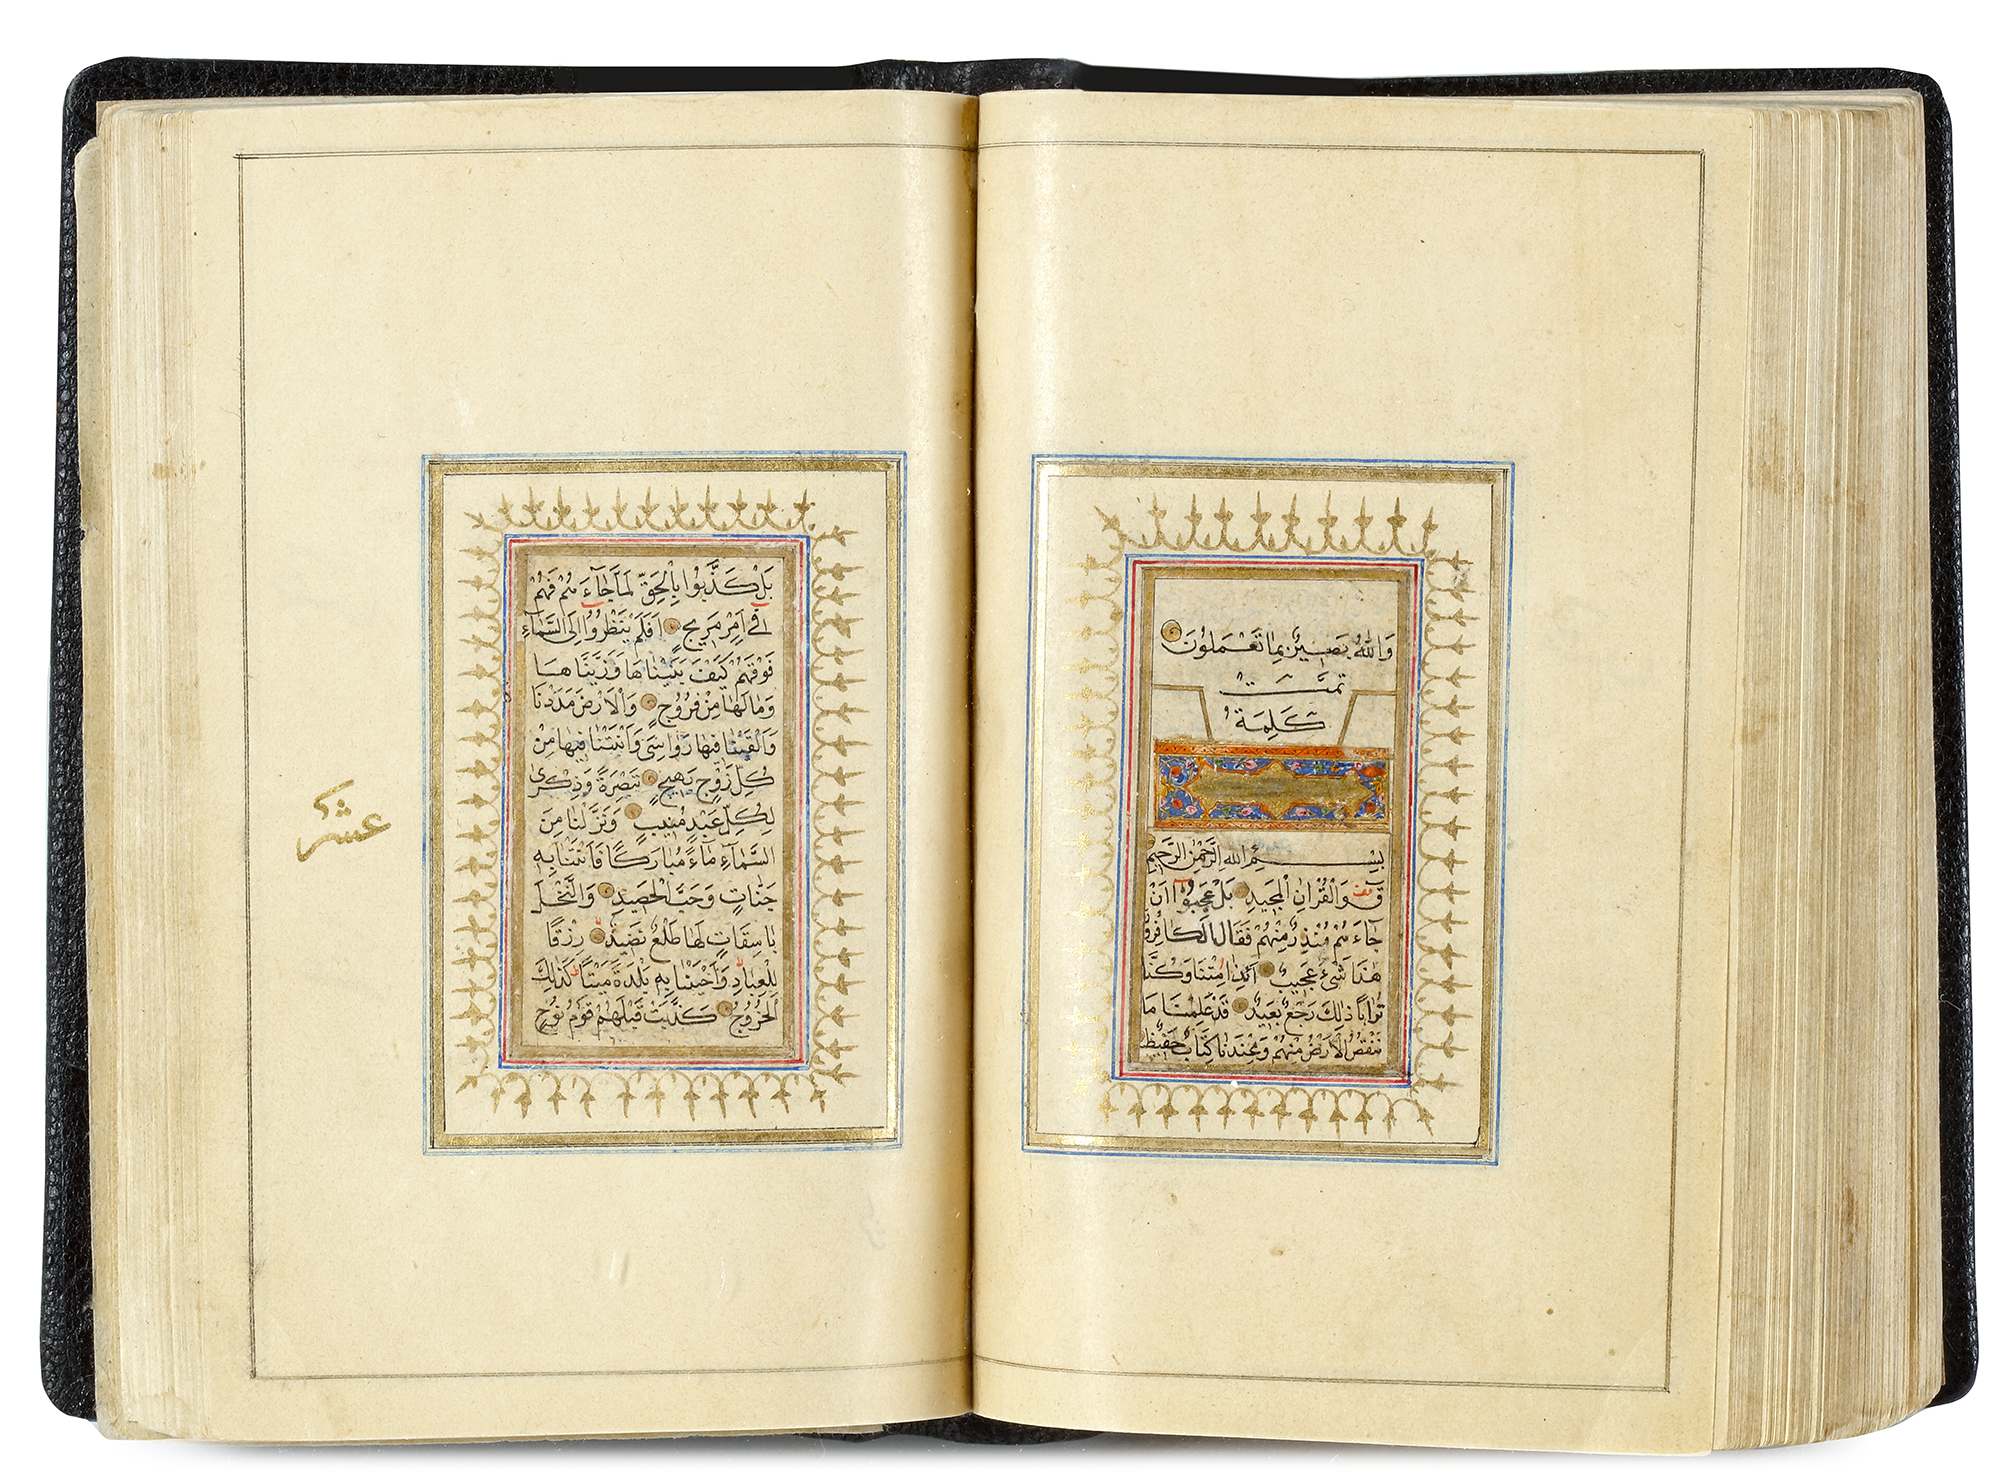 وَاللهُ بَصِيرٌ بِمَا تَعْمَلُونَ
تمَّت
كَلِمَةُ
بِسْمِ اللهِ الرَّحْمٰنِ الرَّحِيمِ
قٓ وَالْقُرْاٰنِ الْمَجِيدِ بَلْ عَجِبُوٓا اَنْ
جَاءَهُمْ مُنْذِرٌ مِنْهُمْ فَقَالَ الْكَافِرُونَ
هٰذَا شَىْءٌ عَجِيبٌ ءَاِذَا مِتْنَا وَكُنَّا
تُرَابًا ذٰلِكَ رَجْعٌ بَعِيدٌ قَدْ عَلِمْنَا مَا
تَنْقُصُ الْاَرْضُ مِنْهُمْ وَعِنْدَنَا كِتَابٌ حَفِيظٌ
بَلْ كَذَّبُوا بِالْحَقِّ لَمَّا جَآءَهُمْ فَهُمْ
فِى اَمْرٍ مَرِيجٍ اَفَلَمْ يَنْظُرُوٓا اِلَى السَّمَآءِ
فَوْقَهُمْ كَيْفَ بَنَيْنَاهَا وَزَيَّنَّاهَا
وَمَا لَهَا مِنْ فُرُوجٍ وَالْاَرْضَ مَدَدْنَاهَا
وَاَلْقَيْنَا فِيهَا رَوَاسِىَ وَاَنْبَتْنَا فِيهَا مِنْ
كُلِّ زَوْجٍ بَهِيجٍ تَبْصِرَةً وَذِكْرٰى
لِكُلِّ عَبْدٍ مُنِيبٍ وَنَزَّلْنَا مِنَ
السَّمَآءِ مَآءً مُبَارَكًا فَاَنْبَتْنَا بِهِ
جَنَّاتٍ وَحَبَّ الْحَصِيدِ وَالنَّخْلَ
بَاسِقَاتٍ لَهَا طَلْعٌ نَضِيدٌ رِزْقًا
لِلْعِبَادِ وَاَحْيَيْنَا بِهِ بَلْدَةً مَيْتًا كَذٰلِكَ
الْخُرُوجُ كَذَّبَتْ قَبْلَهُمْ قَوْمُ نُوحٍ
عشر